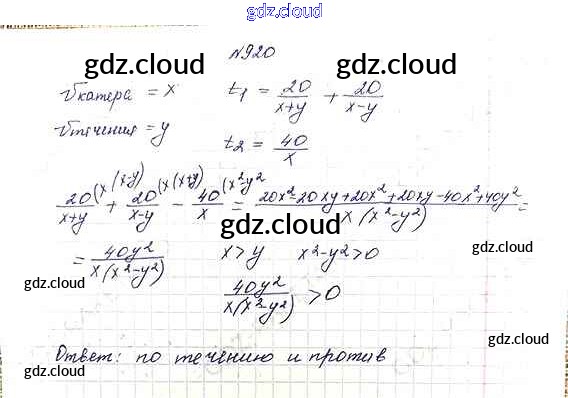 gdz.cloud
№920
gdz.cloud gdz.cloud
Vкатера = x t₁ = 20/(x+y) + 20/(x-y)
Vтечения = y t₂ = 40/x
20/(x+y) (x(x-y) + 20/(x-y) (x(x+y) - 40/x (x²y² = (20x²-20xy+20x²+20xy-40x²+40y²)/(x(x²-y²)) =
= 40y²/(x(x²-y²)) x>y x²-y²>0
gdz.cloud
40y²/(x(x²-y²)) >0
gdz.cloud
Ответ: по течению и против
gdz.cloud